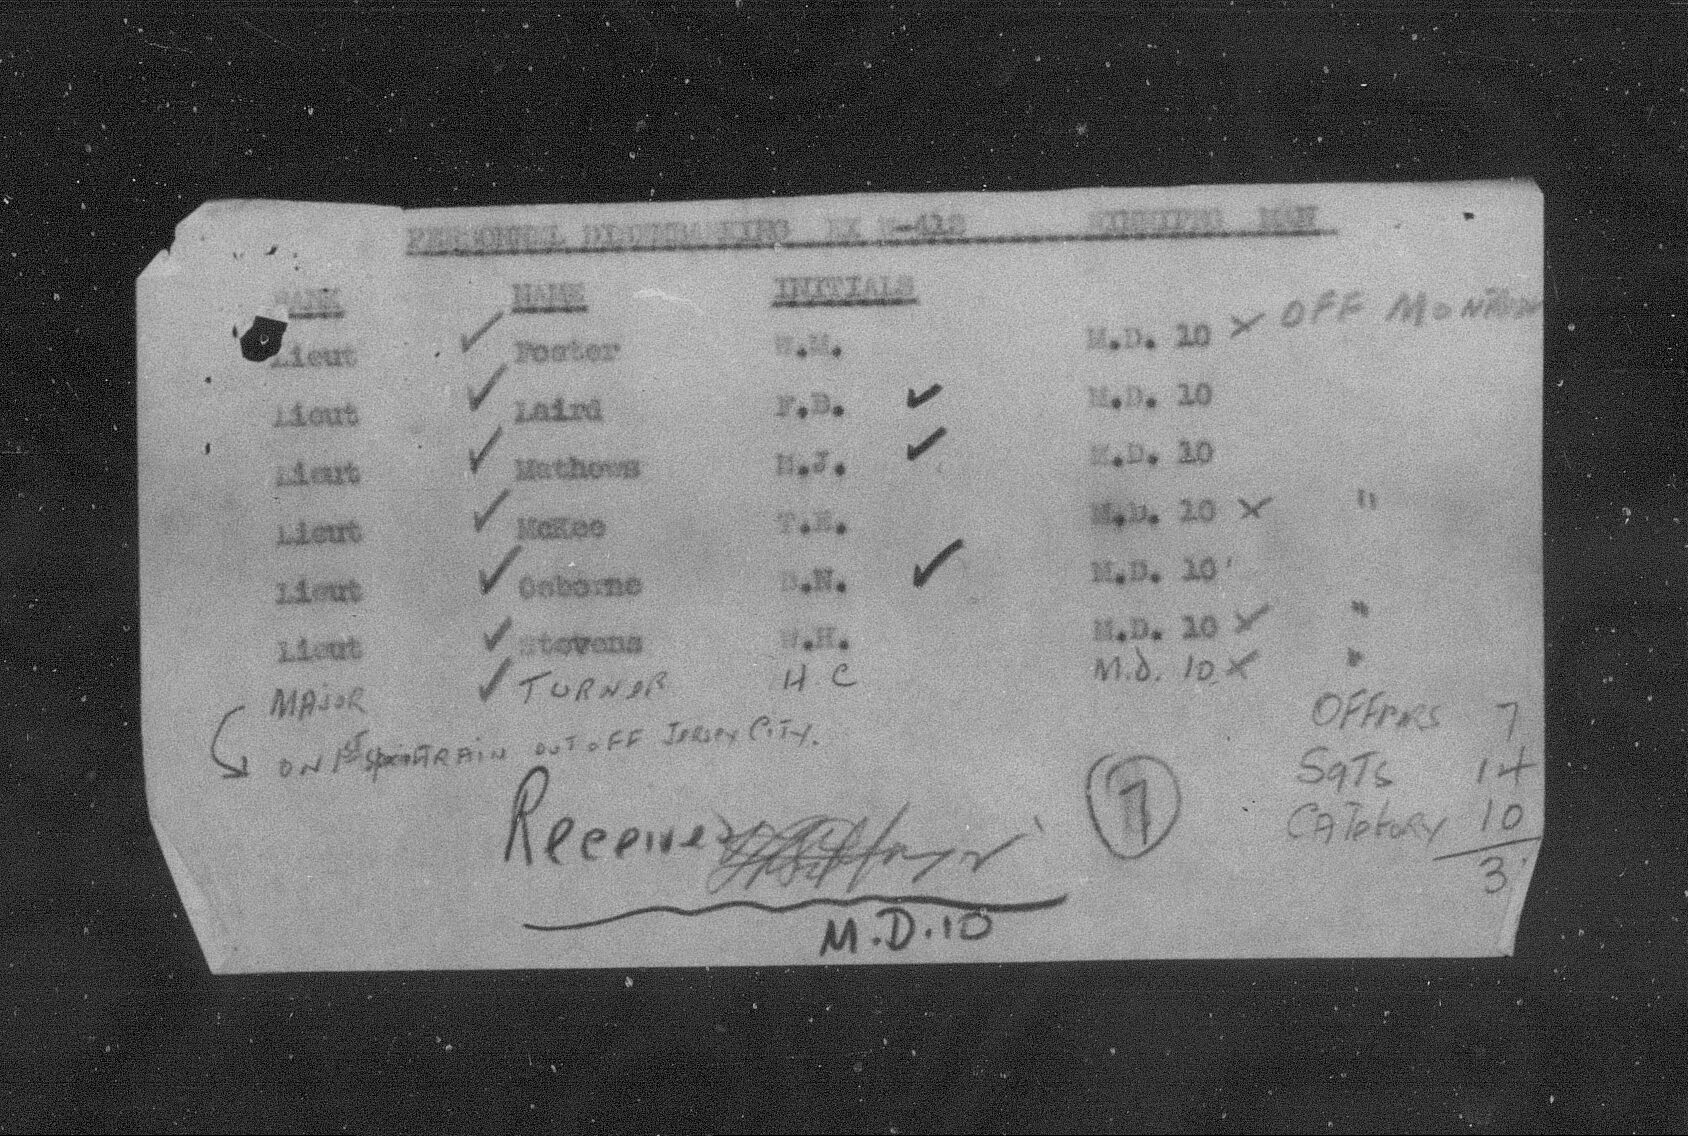 PERSONNEL DISEMBARKING EX W-412 WINNIPEG MAN
RANK NAME INITIALS
Lieut ✓ Foster W.M. M.D. 10 X OFF MONTANA
Lieut ✓ Laird F.D. ✓ M.D. 10
Lieut ✓ Mathews H.J. ✓ M.D. 10
Lieut ✓ McKee T.E. M.D. 10 X "
Lieut ✓ Osborne D.N. ✓ M.D. 10
Lieut ✓ Stevens W.H. M.D. 10 X "
MAJOR ✓ TURNER H C M.D. 10 X "
ON 1ST Special TRAIN OUT OFF JERSEY CITY.
OFFICERS 7
SgTs 14
CATEGORY 10
3
7
Received
M.D.10